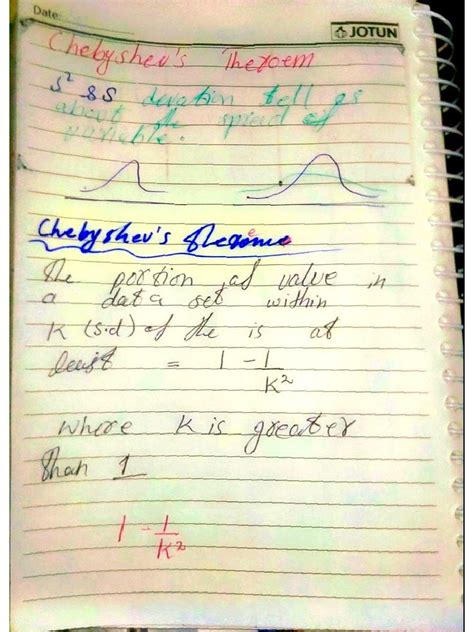 Date:
JOTUN
Chebyshev's Theroem
S² & S devation tell as
about the spread of
variable.
Chebyshev's Theorome
The portion of value in
a data set within
K (S.d) of the is at
least = 1 - 1/K²
where K is greater
than 1
1 - 1/K²